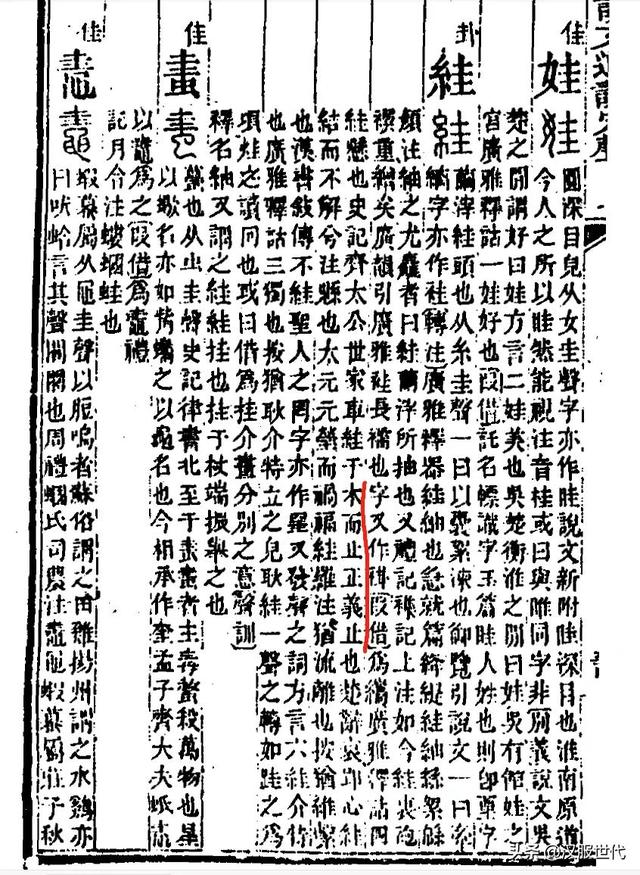 佳 娃 圜深目皃从女圭聲字亦作眭說文新附眭深目也淮南原道
今人之所以眭然能視注音桂或曰與睢同字非別義說文吳
楚之閒謂好曰娃方言二娃美也吳楚衡淮之閒曰娃吳有館娃之
宮廣雅釋詁一娃好也叚借託名幖識字玉篇眭人姓也則卽字
卦 絓 繭滓絓頭也从糸圭聲一曰以囊絮湅也御覽引說文一曰糸
繘字亦作袿轉注廣雅釋器絓紬也急就篇絳緹絓紬絲絮緜
顏注紬之尤麤者曰絓繭滓所抽也又禮記雜記上注如今袿袍
襈重繒矣廣韻引廣雅袿長襦也字又作褂叚借爲廣雅釋詁四
絓懸也史記齊太公世家車絓于木而止正義止也楚辭哀郢心絓
結而不解兮注縣也太元元瑩而禍福絓羅注猶流離也按猶維縶
也漢書敘傳不絓聖人之罔字亦作罣又發聲之詞方言六絓介特
也廣雅釋詁三獨也按猶耿介特立之皃耿絓一聲之轉如跬之爲
頃烓之讀冋也或曰借爲挂介畫分別之意聲訓
釋名紬又謂之絓絓挂也挂于杖端振舉之也
佳 蠆也从虫圭聲史記律書北至于奎奎者主毒螫殺萬物也是
以名亦如之以名也今相承作奎孟子齊大夫蚔
以鼃爲之叚借爲鼃禮
記月令注螻蟈蛙也
佳 鼃 蝦蟇屬从黽圭聲以脰鳴者蘇俗謂之田雞揚州謂之水鷄亦
曰吠蛤言其聲閣閣也周禮蟈氏司農注鼃黽蝦蟇屬莊子秋
头条 @汉服世代